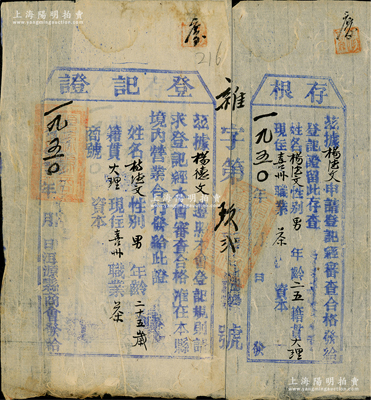 上海陽明拍賣
www.sh-yangming.com
存根
茲據楊德文申請登記經審查合格發給
登記證留此存查
姓名楊德文性別男年齡二五籍貫大理
現住喜州職業茶資本
一九五〇年 月 日 發
雜字第玖貳號
216
登記證
茲據楊德文遵照本會登記規則請
求登記經本會審查合格准在本縣
境内營業合行發給此證
姓名楊德文性別男年齡二十五歲
籍貫大理現住喜州職業茶
商號 資本
一九五〇年 月 日洱源縣商會發給